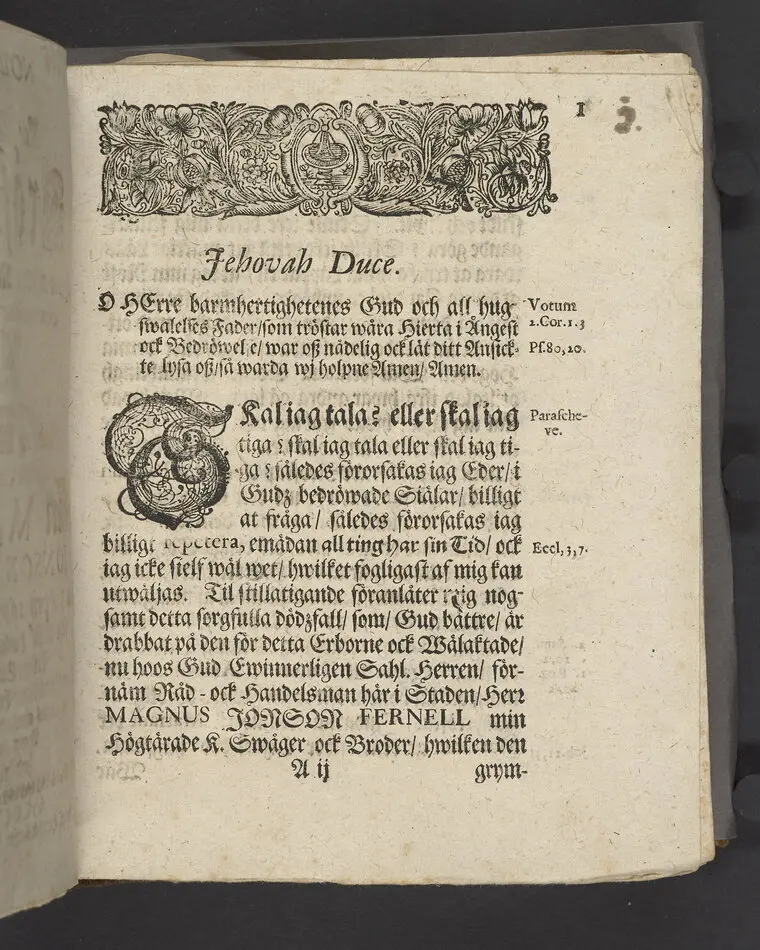 1
Jehovah Duce.
O HErre barmhertighetenes Gud och all hug-
swalelses Fader/som tröstar wåra Hierta i Ångest
ock Bedröwel e/ war oß nådelig ock låt ditt Ansick-
te lysa oß/så warda wj holpne Amen/ Amen.
Votum
2.Cor.1.3
Ps.80,20.
SKal iag tala? eller skal iag
tiga? skal iag tala eller skal iag ti-
ga? således förorsakas iag Eder/ i
Gudz bedröwade Siälar/ billigt
at fråga/ således förorsakas iag
billigt repetera, emädan all ting har sin Tid/ ock
iag icke sielf wäl wet/ hwilket fogligast af mig kan
utwäljas. Til stillatigande föranlåter mig nog-
samt detta sorgfulla dödzfall/ som/ Gud bättre/ är
drabbat på den för detta Erborne ock Wälaktade/
nu hoos Gud Ewinnerligen Sahl. Herren/ för-
näm Råd - ock Handelsman här i Staden/ Herr
MAGNUS JONSON FERNELL min
Högtärade K. Swåger ock Broder/ hwilken den
Parasche-
ve.
Eccl,3,7.
A ij
grym-